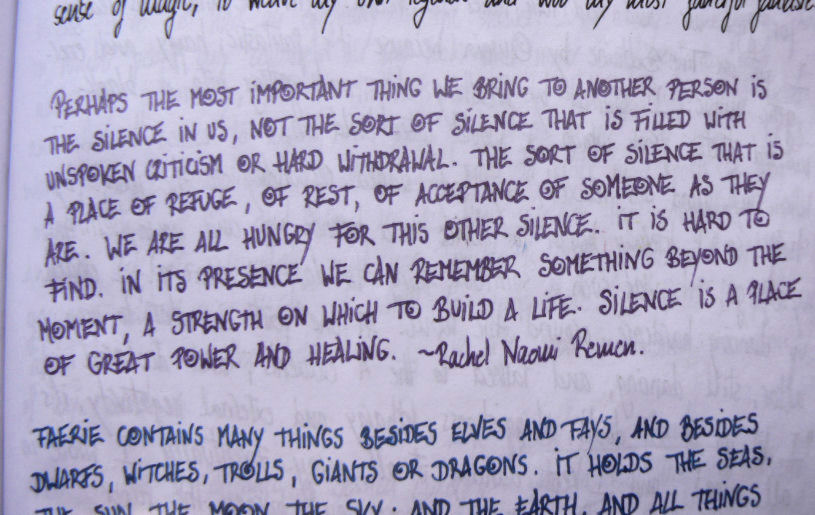 sense of magic, to weave my own legends and woo my most fanciful fantasies
PERHAPS THE MOST IMPORTANT THING WE BRING TO ANOTHER PERSON IS
THE SILENCE IN US, NOT THE SORT OF SILENCE THAT IS FILLED WITH
UNSPOKEN CRITICISM OR HARD WITHDRAWAL. THE SORT OF SILENCE THAT IS
A PLACE OF REFUGE, OF REST, OF ACCEPTANCE OF SOMEONE AS THEY
ARE. WE ARE ALL HUNGRY FOR THIS OTHER SILENCE. IT IS HARD TO
FIND. IN ITS PRESENCE WE CAN REMEMBER SOMETHING BEYOND THE
MOMENT, A STRENGTH ON WHICH TO BUILD A LIFE. SILENCE IS A PLACE
OF GREAT POWER AND HEALING. ~Rachel Naomi Remen.
FAERIE CONTAINS MANY THINGS BESIDES ELVES AND FAYS, AND BESIDES
DWARFS, WITCHES, TROLLS, GIANTS OR DRAGONS. IT HOLDS THE SEAS,
THE SUN, THE MOON, THE SKY; AND THE EARTH, AND ALL THINGS